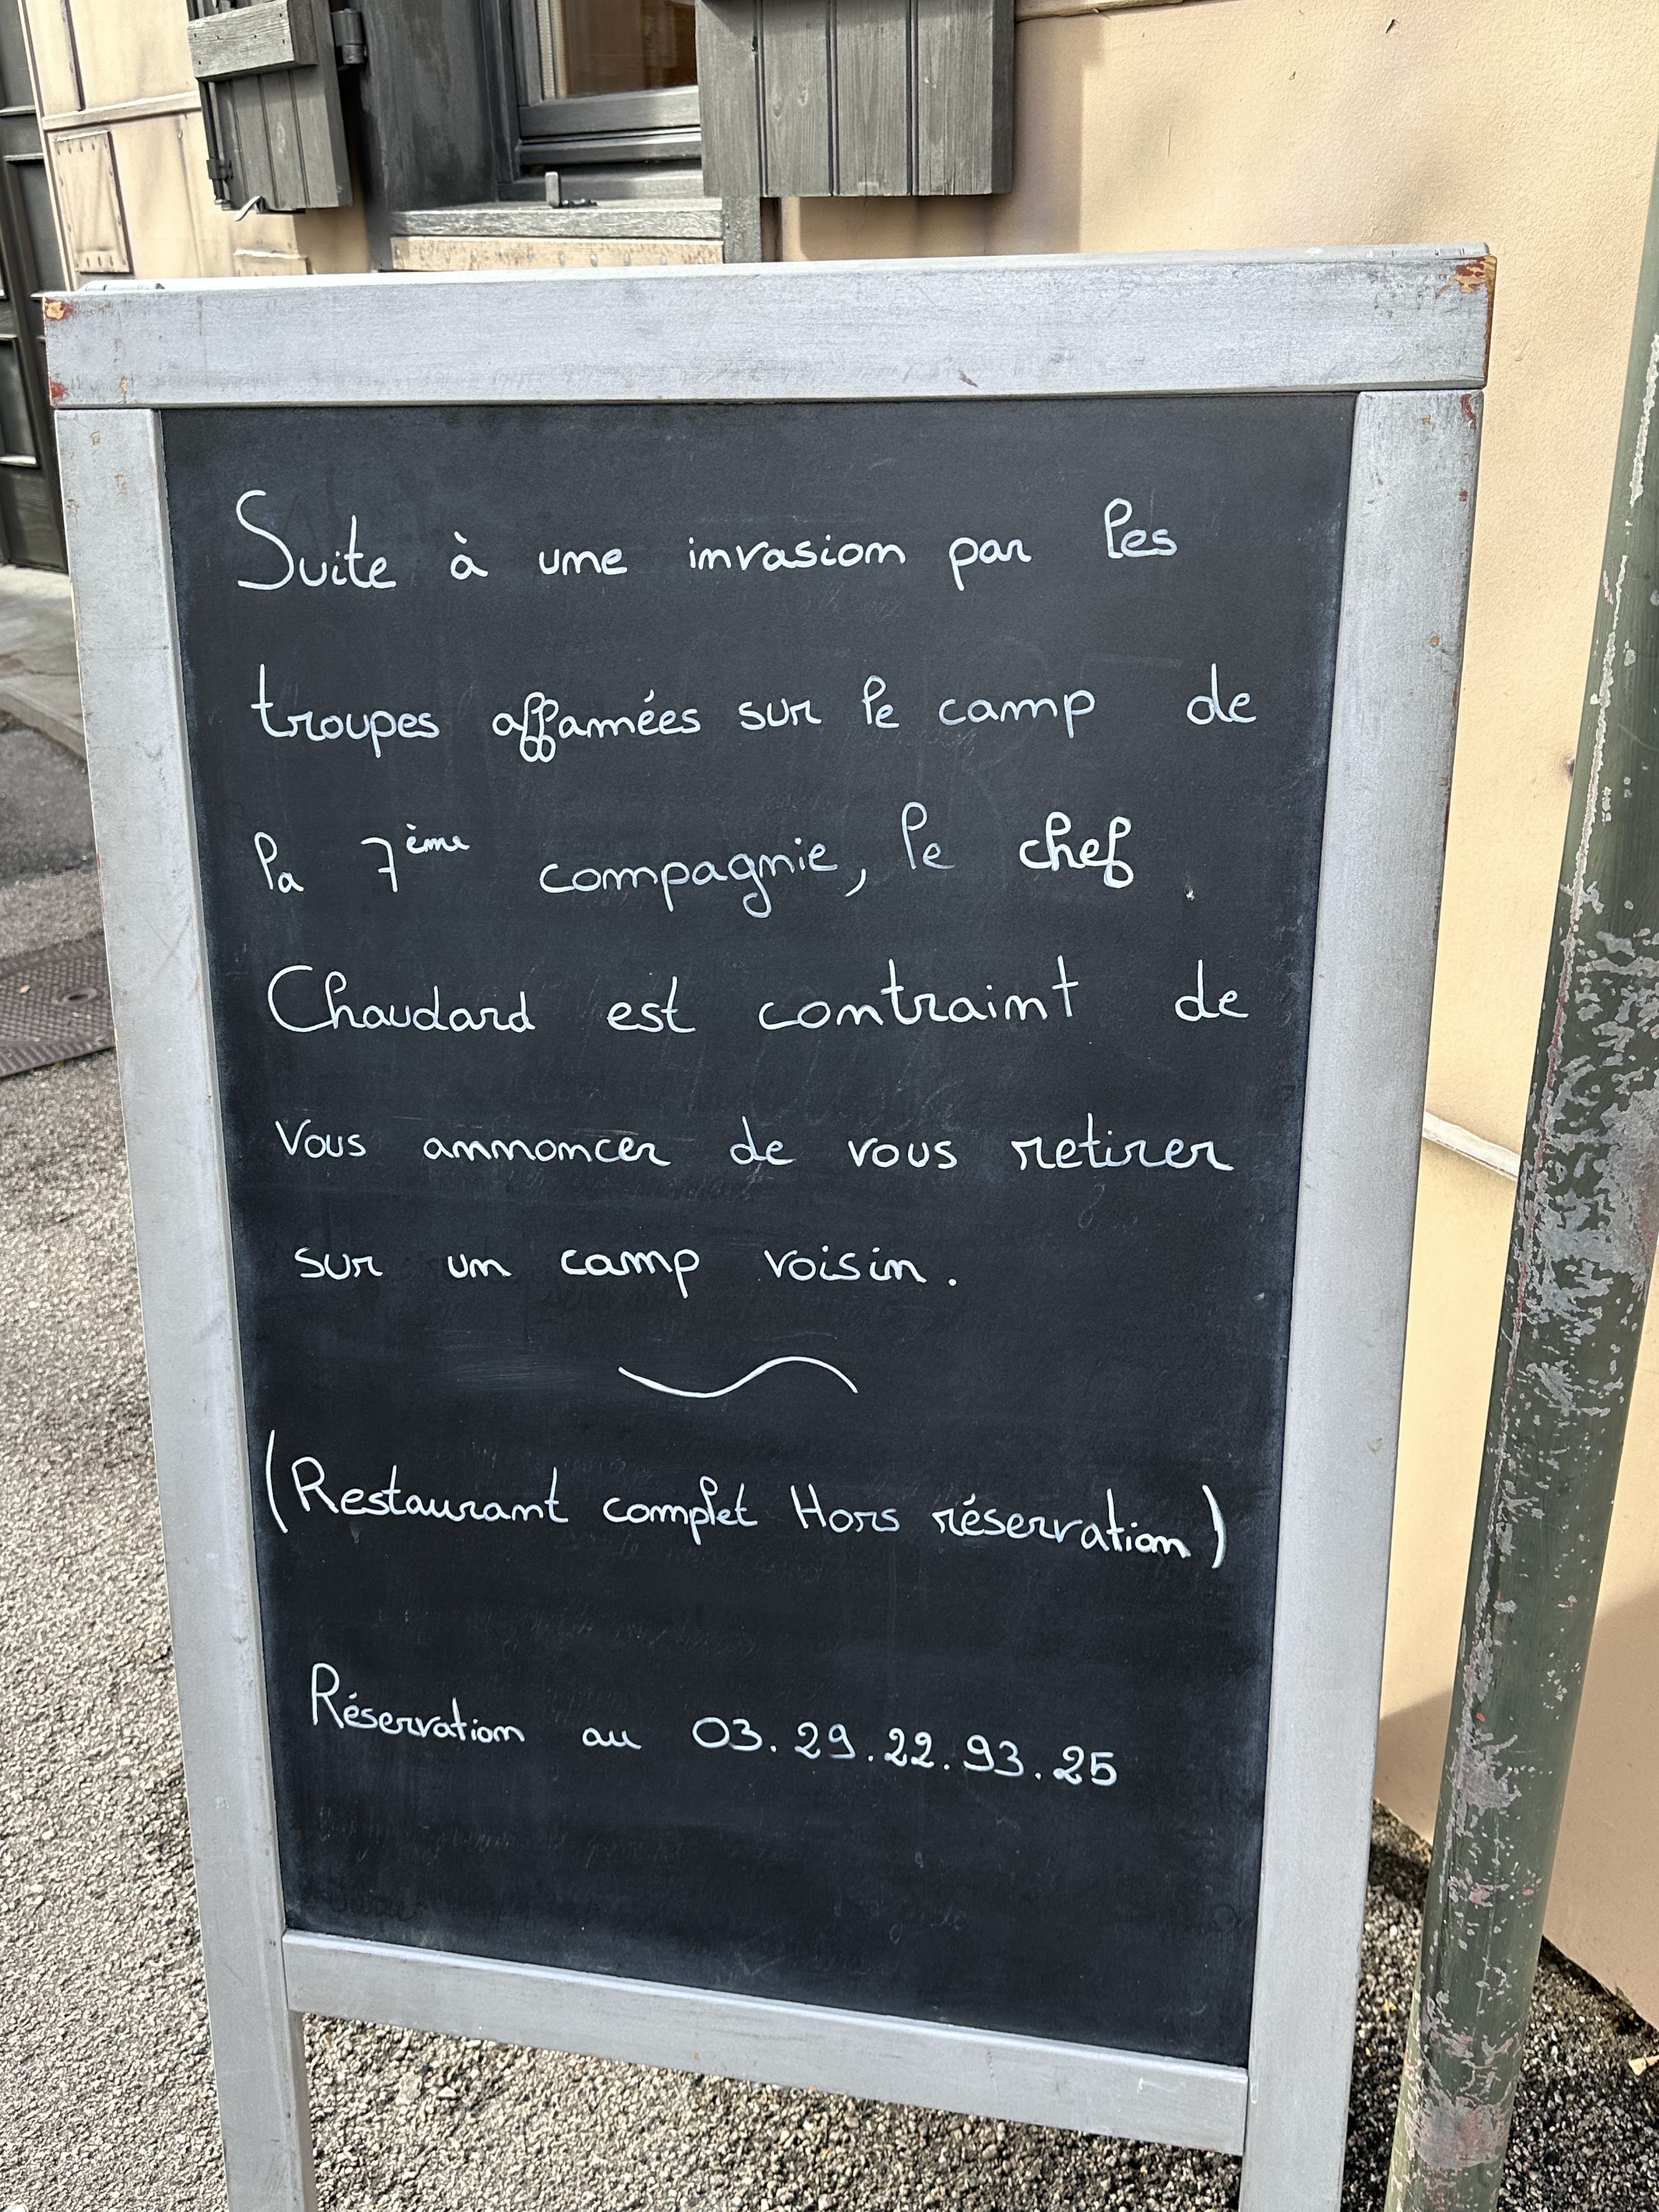 Suite à une invasion par les
troupes affamées sur le camp de
la 7ème compagnie, le chef
Chaudard est contraint de
vous annoncer de vous retirer
sur un camp voisin.
(Restaurant complet Hors réservation)
Réservation au 03.29.22.93.25